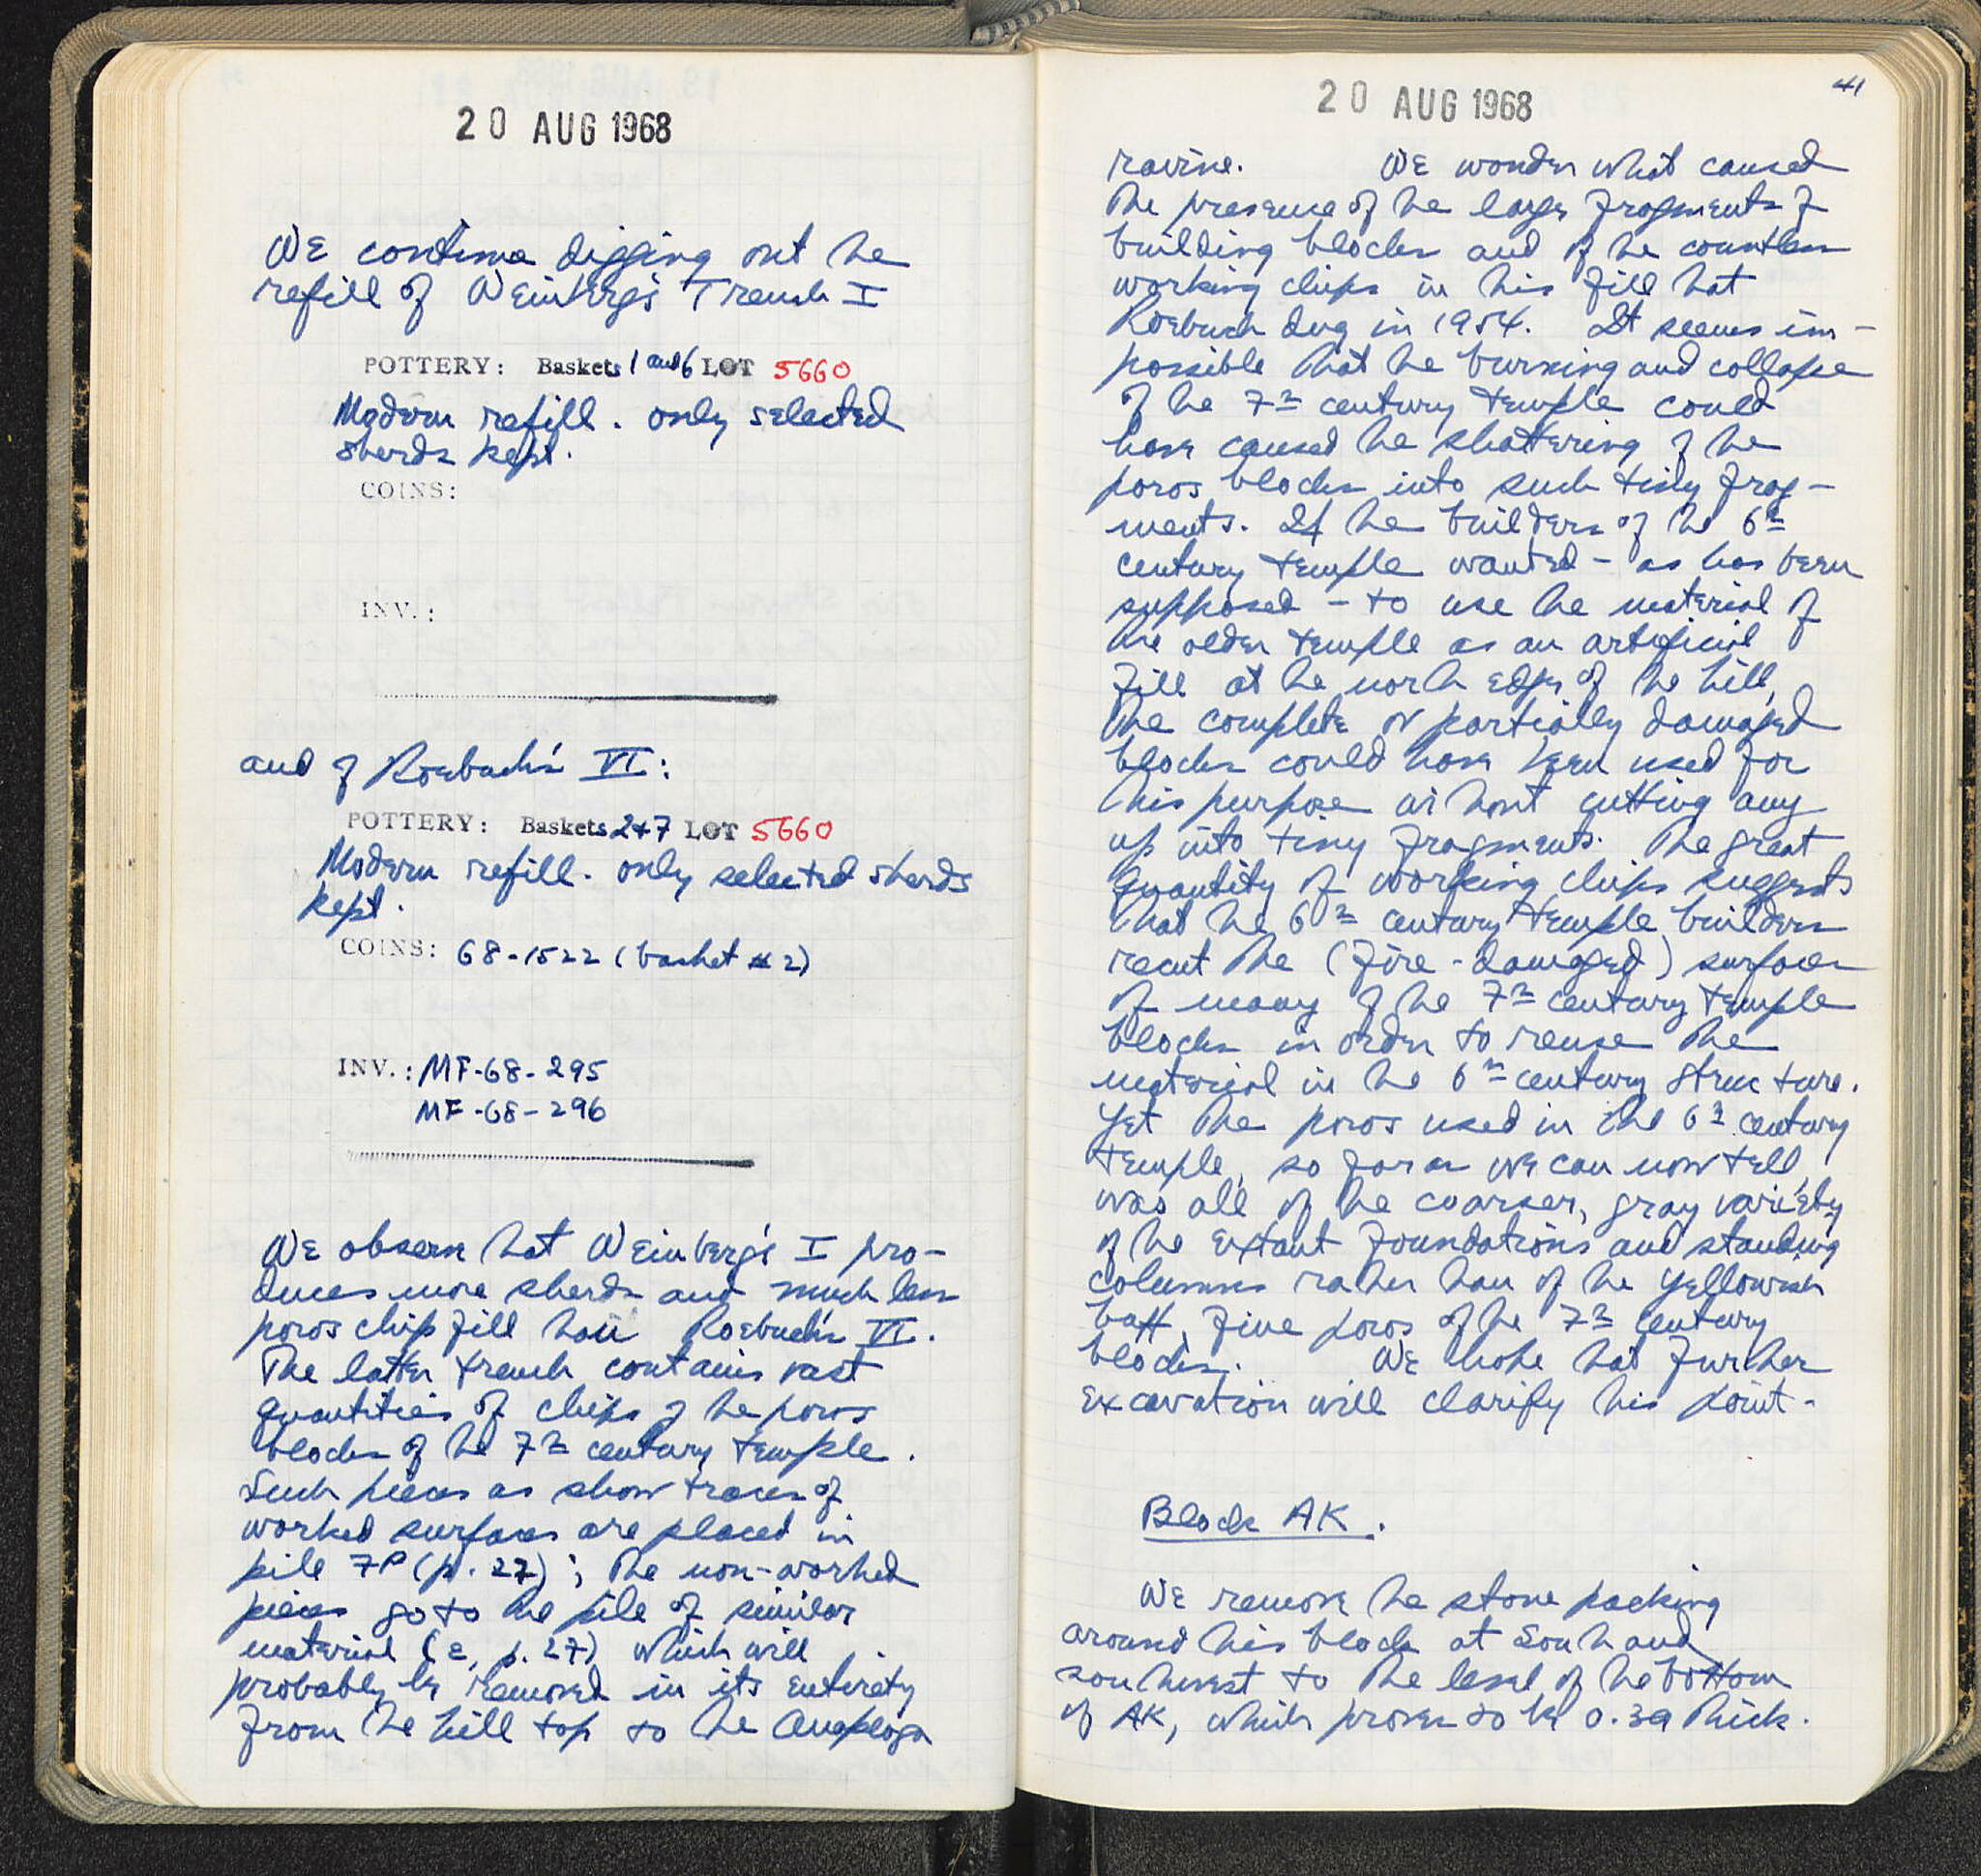 20 AUG 1968
We continue digging out the
refill of Weinberg's Trench I
POTTERY: Baskets 1 and 6 LOT 5660
Modern refill. only selected
sherds kept.
COINS:
INV.:
and of Roebuck's VI:
POTTERY: Baskets 2+7 LOT 5660
Modern refill. only selected sherds
kept.
COINS: 68-1522 (basket #2)
INV.: MF-68-295
MF-68-296
We observe that Weinberg's I pro-
duces more sherds and much less
poros chip fill than Roebuck's VI.
The latter trench contains vast
quantities of chips of the poros
blocks of the 7th century temple.
Such pieces as show traces of
worked surfaces are placed in
pile 7P (p. 27); the non-worked
pieces go to the pile of similar
material (ε, p. 27) which will
probably be removed in its entirety
from the hill top to the Anaploga
20 AUG 1968
41
ravine. We wonder what caused
the presence of the large fragments of
building blocks and of the countless
working chips in this fill that
Roebuck dug in 1954. It seems im-
possible that the burning and collapse
of the 7th century temple could
have caused the shattering of the
poros blocks into such tiny frag-
ments. If the builders of the 6th
century temple wanted - as has been
supposed - to use the material of
the older temple as an artificial
fill at the north edge of the hill,
the complete or partially damaged
blocks could have been used for
this purpose without cutting any
up into tiny fragments. The great
quantity of working chips suggests
that the 6th century temple builders
recut the (fire-damaged) surfaces
of many of the 7th century temple
blocks in order to reuse the
material in the 6th century structure.
Yet the poros used in the 6th century
temple, so far as we can now tell,
was all of the coarser, gray variety
of the extant foundations and standing
columns rather than of the yellowish
buff, fine poros of the 7th century
blocks. We hope that further
excavation will clarify this point.
Block AK.
We remove the stone packing
around this block at South and
southwest to the level of the bottom
of AK, which proves to be 0.39 thick.